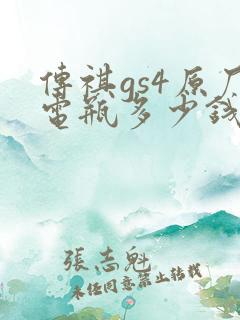 傳祺gs4原厂
電瓶多少錢
張志魁
未经同意禁止转载